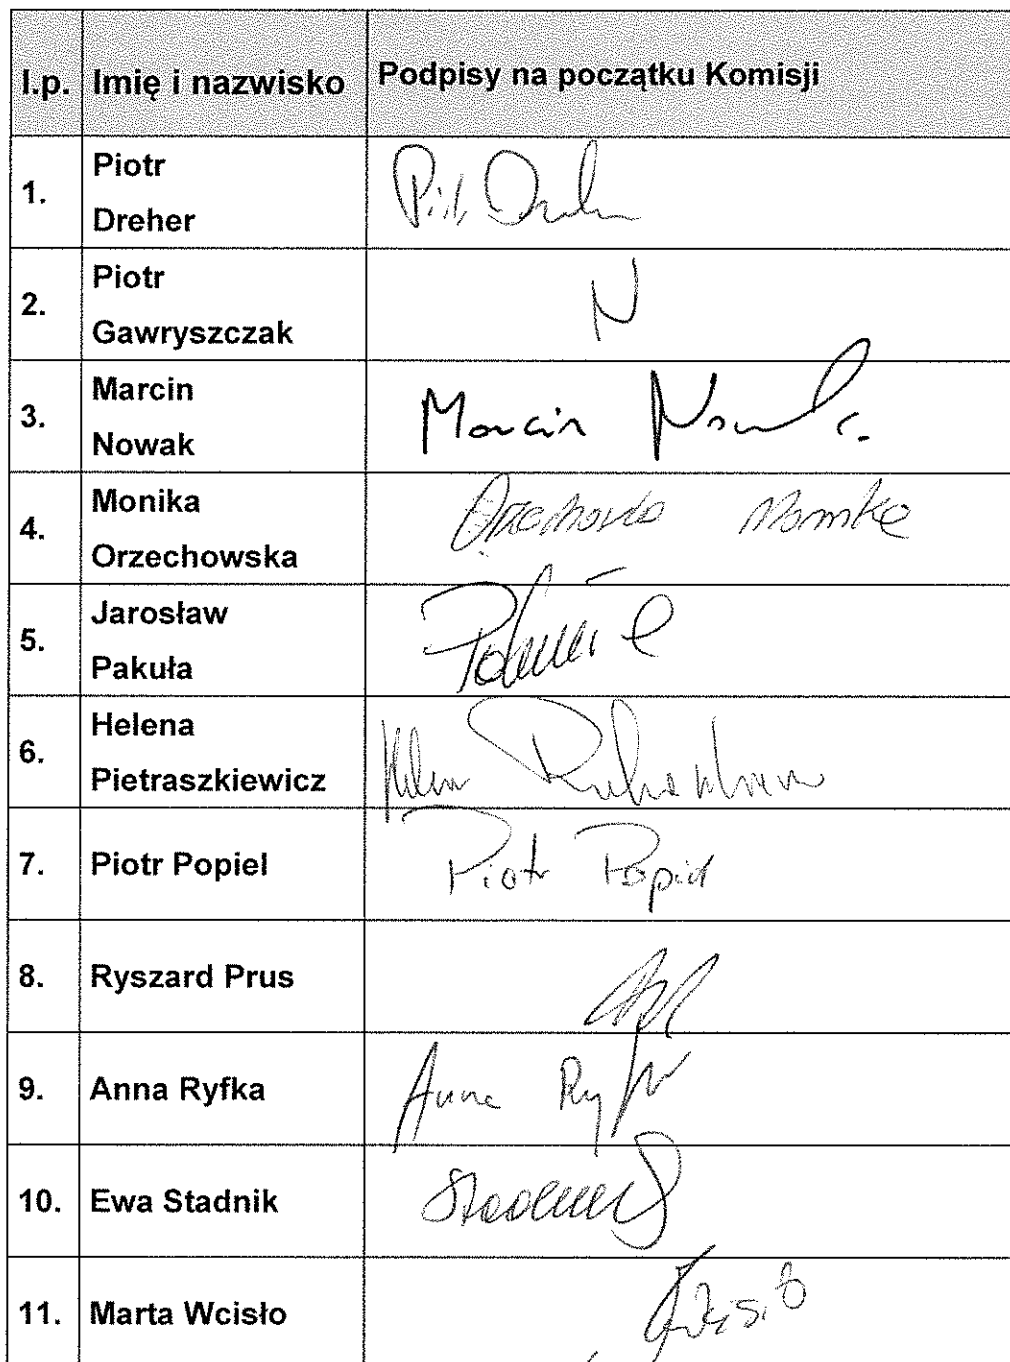 l.p. Imię i nazwisko Podpisy na początku Komisji
1. Piotr
Dreher
2. Piotr
Gawryszczak
N
3. Marcin
Nowak
Marcin Nowak
4. Monika
Orzechowska
Orzechowska Monika
5. Jarosław
Pakuła
6. Helena
Pietraszkiewicz
7. Piotr Popiel Piotr Popiel
8. Ryszard Prus
9. Anna Ryfka Anna Ryfka
10. Ewa Stadnik
11. Marta Wcisło